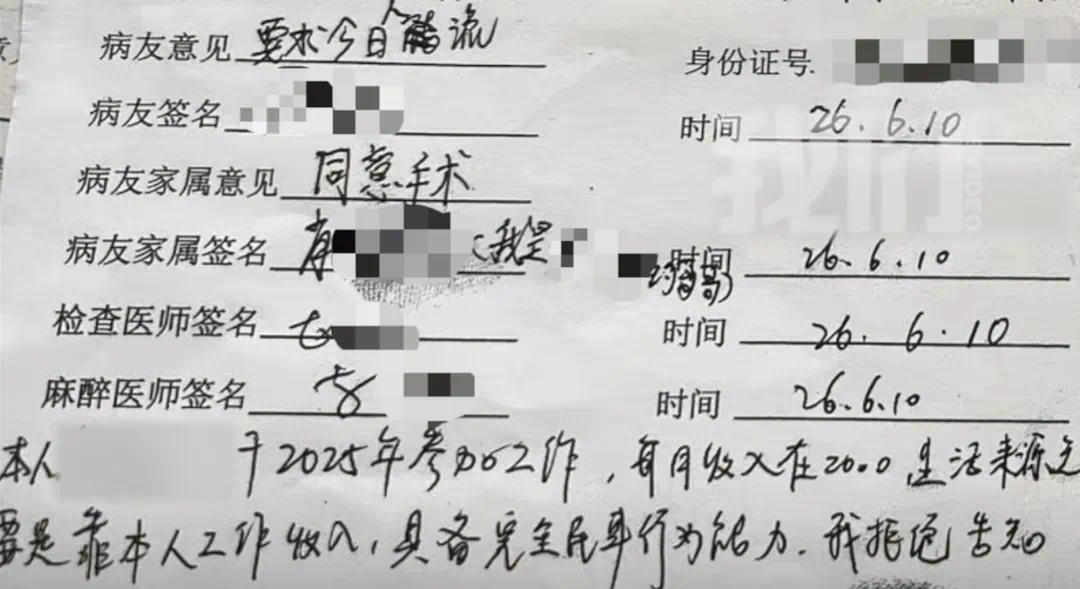 病友意见 要求今日人流
身份证号.
病友签名
时间 26.6.10
病友家属意见 同意手术
病友家属签名 肖 (我是 的哥哥)
时间 26.6.10
检查医师签名
时间 26.6.10
麻醉医师签名
时间 26.6.10
我们
VIDEO
本人 于2025年参加工作，每月收入在2000，生活来源主
要是靠本人工作收入，具备完全民事行为能力.我拒绝告知